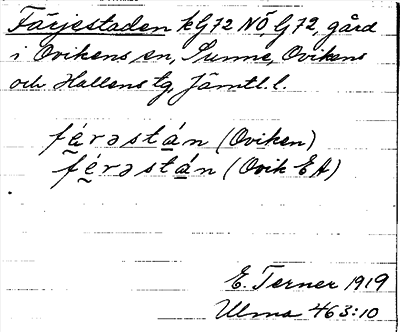 Färjestaden kG72 NÖ, G72, gård
i Ovikens sn, Sunne, Ovikens
och Hallens tg, Jämtl. l.
fé̱rəstá̱n (Oviken)
fé̱rəstá̱n (Ovik EA)
E. Terner 1919
Ulma 463:10